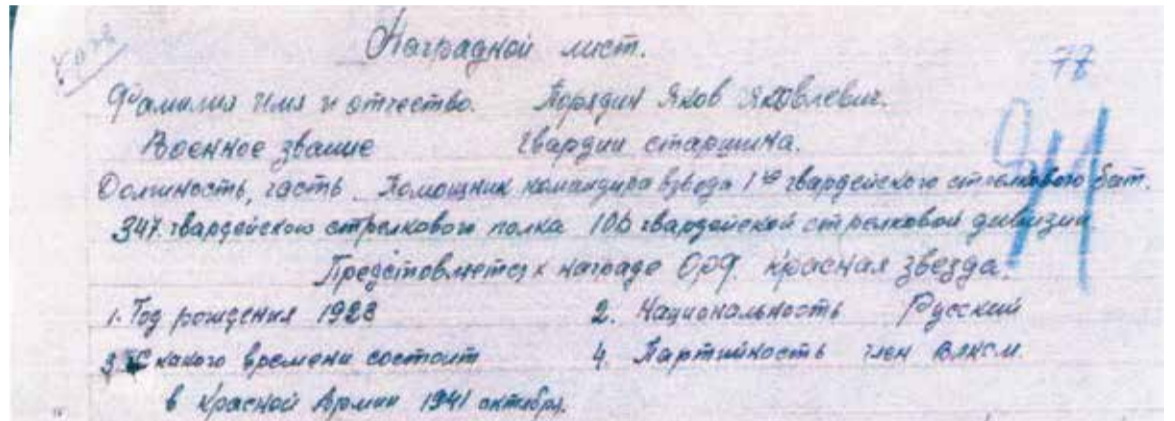 Наградной лист.
78
Фамилия имя и отчество. Порядин Яков Яковлевич.
Военное звание Гвардии старшина.
Должность, часть Помощник командира взвода 1го гвардейского стрелкового бат.
347 гвардейского стрелкового полка 106 гвардейской стрелковой дивизии
Представляется к награде Орд. Красная Звезда.
1. Год рождения 1923 2. Национальность Русский
3. С какого времени состоит 4. Партийность член ВЛКСМ.
в Красной Армии 1941 октября.